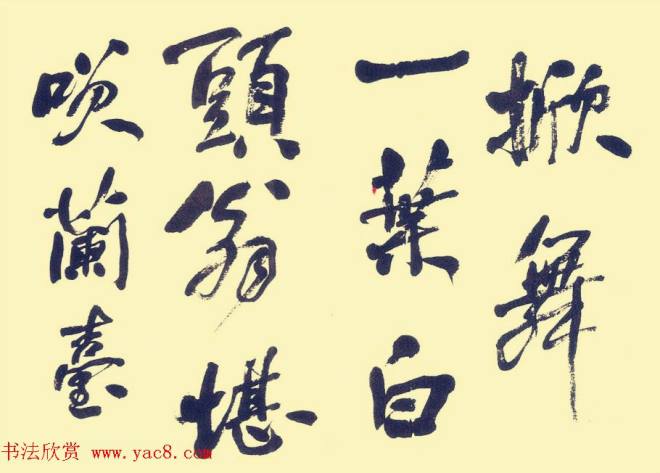 掀舞
一葉白
頭翁堪
咲蘭臺
书法欣赏 www.yac8.com